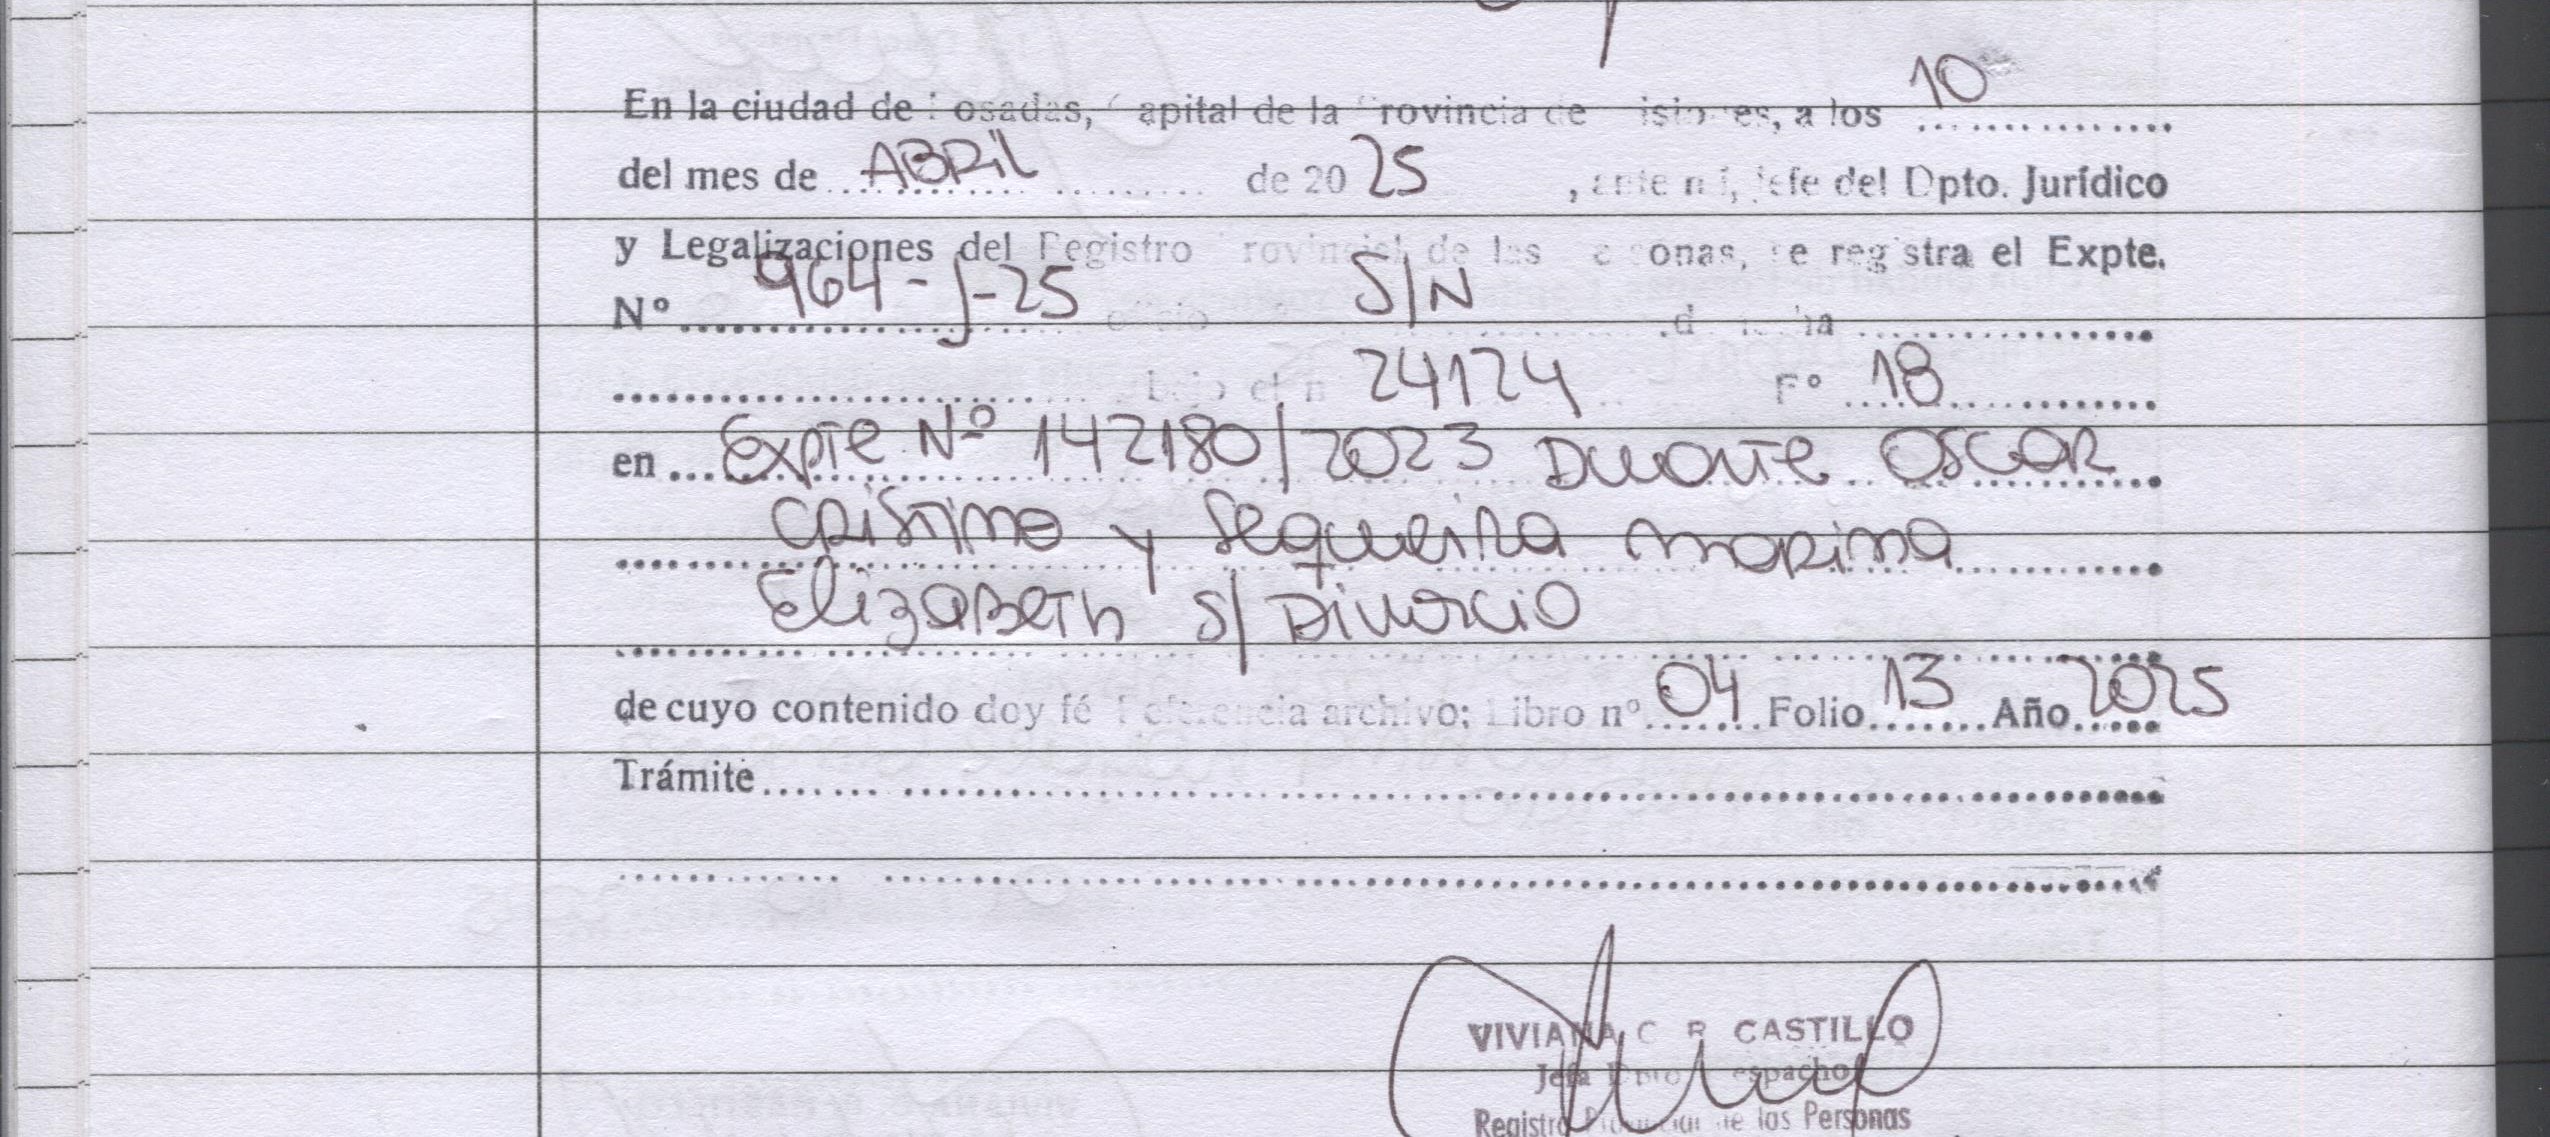 En la ciudad de Posadas, Capital de la Provincia de Misiones, a los 10
del mes de ABRil de 20 25, ante mí, Jefe del Dpto. Jurídico
y Legalizaciones del Registro Provincial de las Personas, se registra el Expte.
Nº 964-J-25 oficio S/N de fecha
bajo el nº 24124 Fº 18
en Expte Nº 142180/2023 Duarte Oscar
Cristino y Sequeira Marina
Elizabeth S/ Divorcio
de cuyo contenido doy fé Referencia archivo; Libro nº 04 Folio 13 Año 2025
Trámite
VIVIANA C R CASTILLO
Jefa Dpto Despacho
Registro Provincial de las Personas